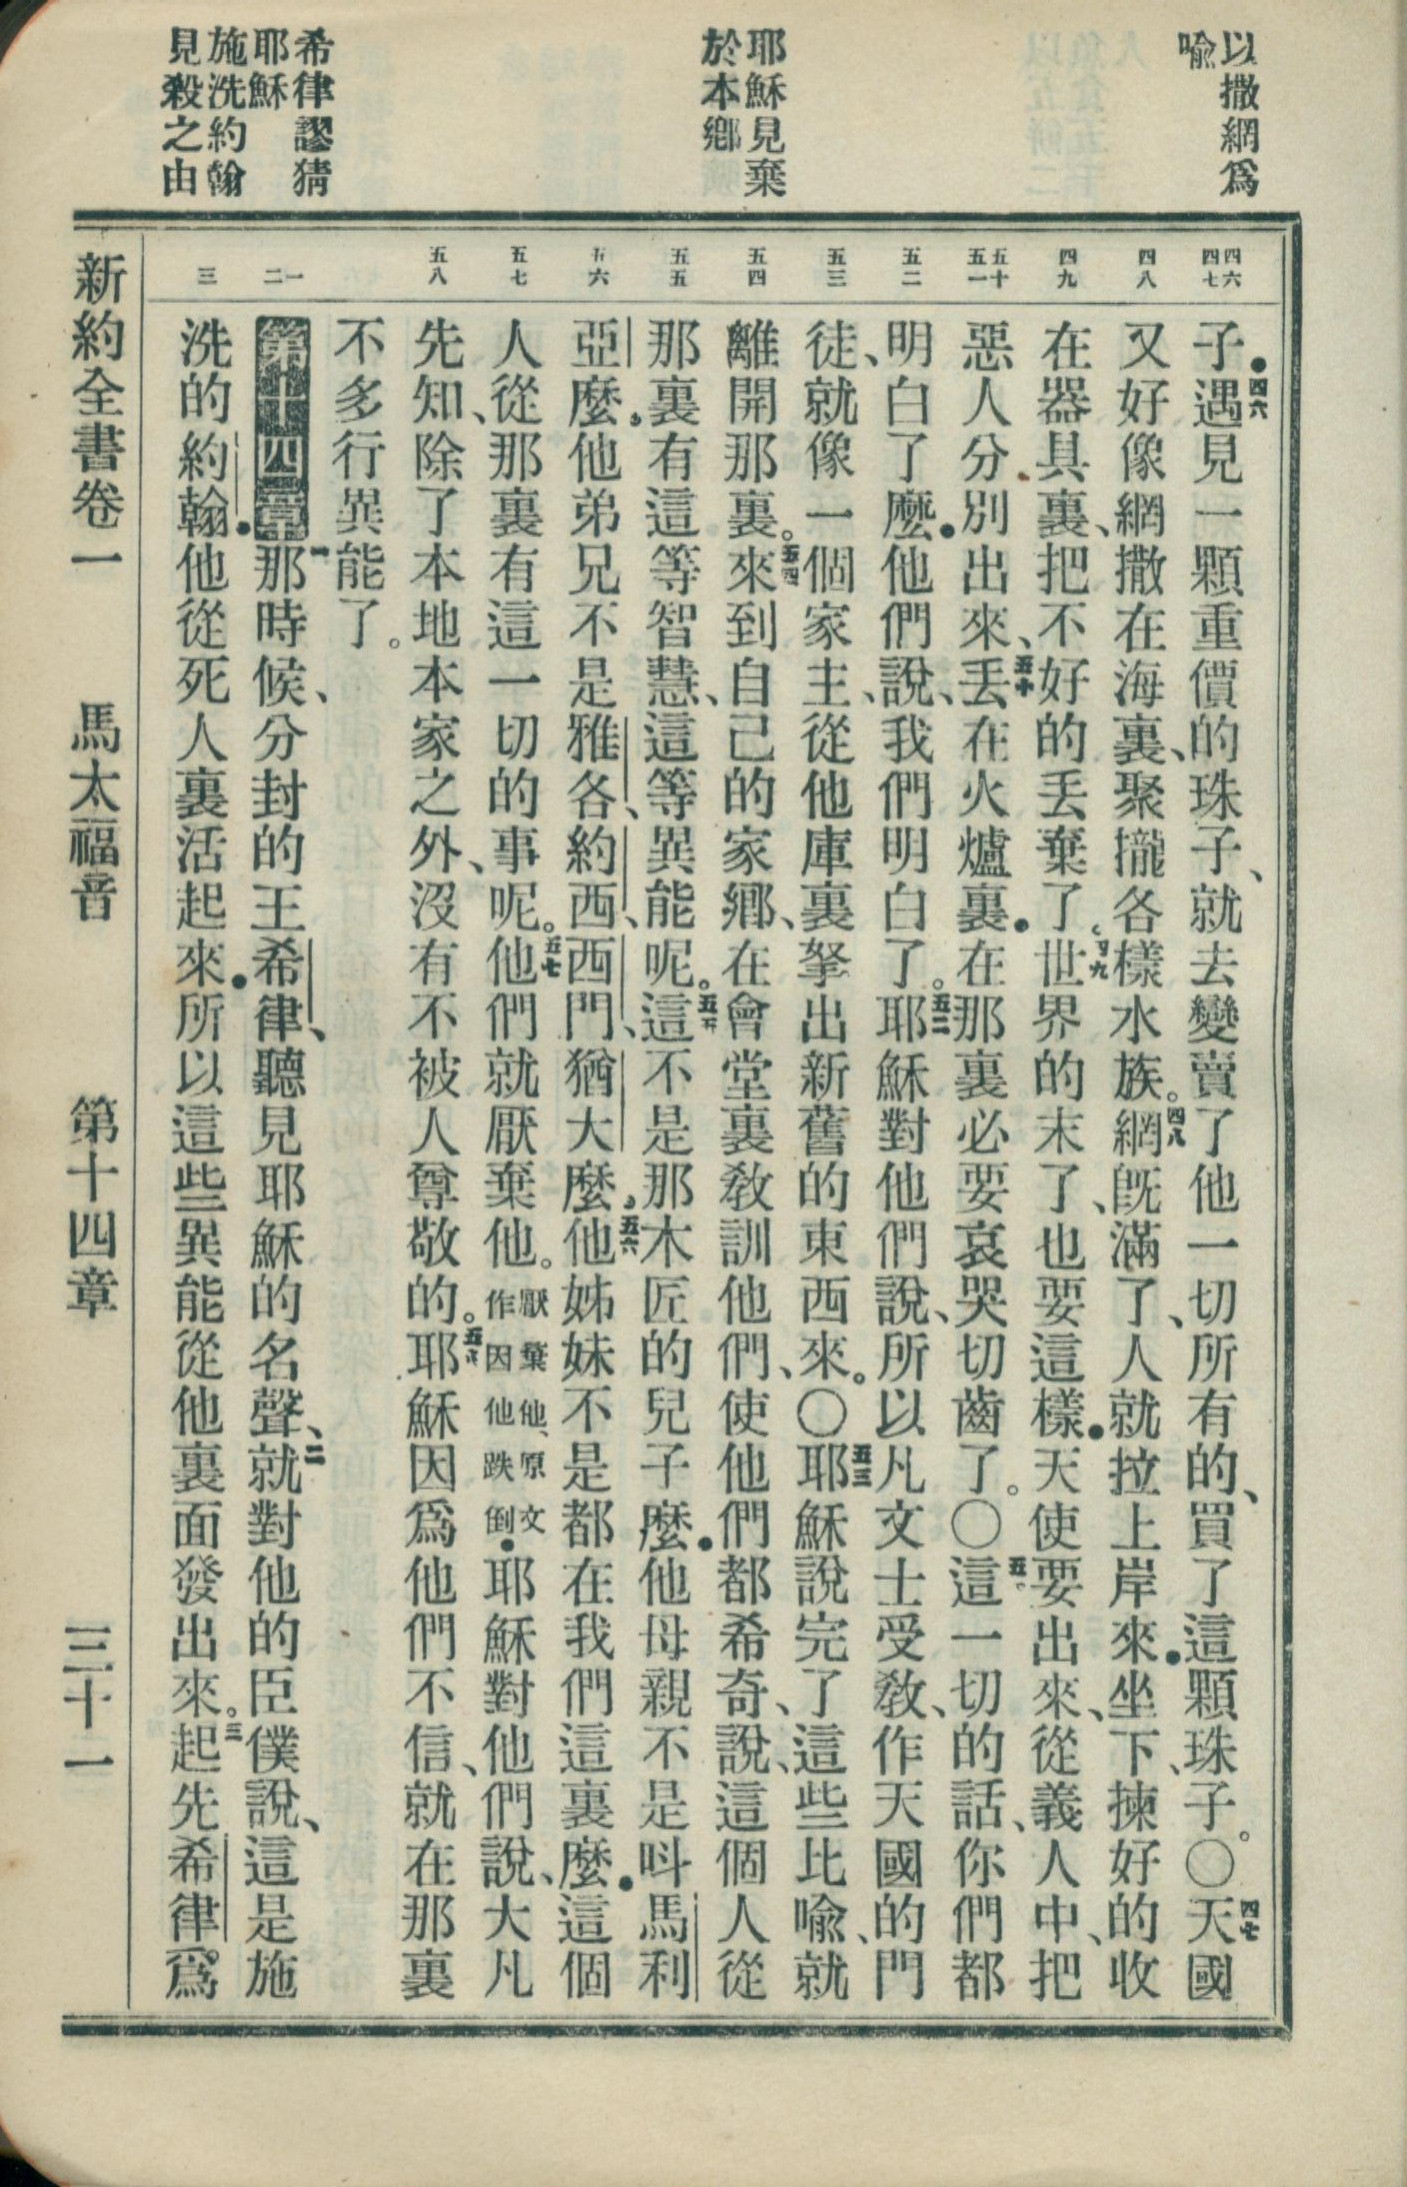 以撒網爲
喩
耶穌見棄
於本鄕
希律謬猜
耶穌
施洗約翰
見殺之由
四六
四七
四八
四九
五十
五一
五二
五三
五四
五五
五六
五七
五八
一
二
三
子•四六遇見一顆重價的珠子、就去變賣了他一切所有的、買了這顆珠子。〇四七天國
又好像網撒在海裏、聚攏各樣水族。四八網旣滿了、人就拉上岸來•坐下、揀好的收
在器具裏、把不好的丟棄了。四九世界的末了、也要這樣•天使要出來、從義人中、把
惡人分別出來、五十丟在火爐裏•在那裏必要哀哭切齒了。〇五一這一切的話、你們都
明白了麽•他們說、我們明白了。五二耶穌對他們說、所以凡文士受敎、作天國的門
徒、就像一個家主、從他庫裏拏出新舊的東西來。〇五三耶穌說完了這些比喻、就
離開那裏。五四來到自己的家鄕、在會堂裏敎訓他們、使他們都希奇、說、這個人從
那裏有這等智慧、這等異能呢。五五這不是那木匠的兒子麽•他母親不是呌馬利
亞麽•他弟兄不是雅各、約西、西門、猶大麽•五六他姊妹不是都在我們這裏麽•這個
人從那裏有這一切的事呢。五七他們就厭棄他。厭棄他、原文作因他跌倒•耶穌對他們說、大凡
先知、除了本地本家之外、沒有不被人尊敬的。五八耶穌因爲他們不信、就在那裏
不多行異能了。
第十四章一那時候、分封的王希律、聽見耶穌的名聲、二就對他的臣僕說、這是施
洗的約翰•他從死人裏活起來•所以這些異能從他裏面發出來。三起先希律爲
新約全書卷一 馬太福音 第十四章 三十一